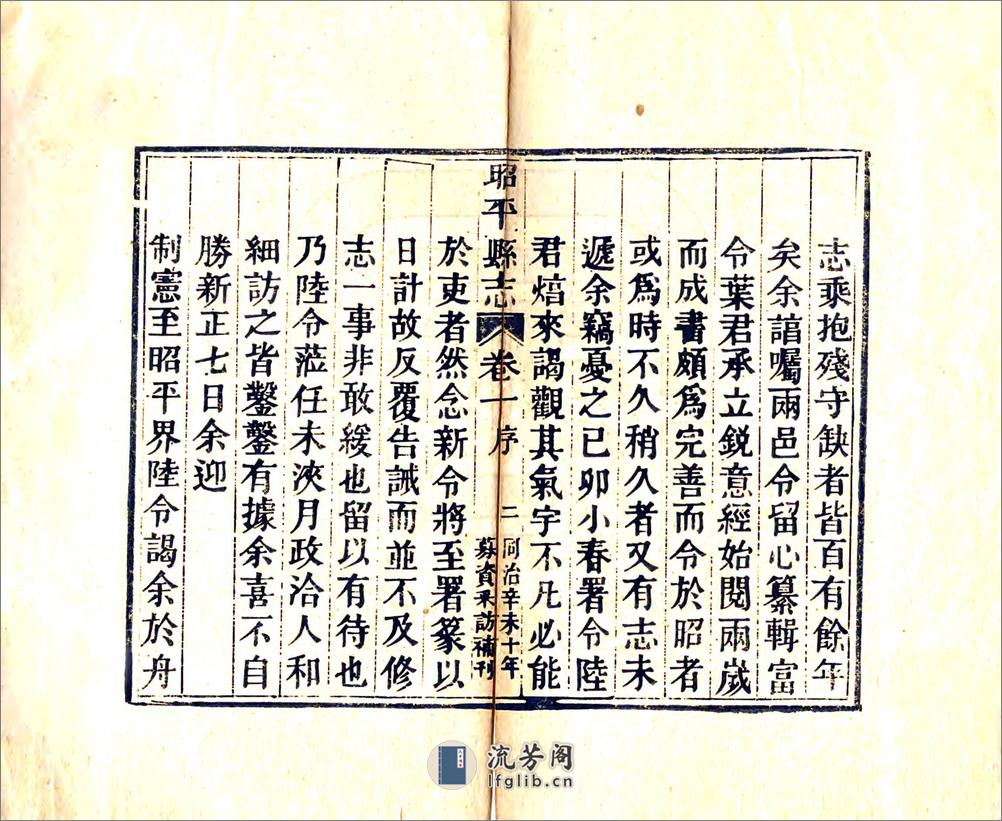 志乘抱殘守缺者皆百有餘年
矣余諳囑兩邑令留心纂輯富
令葉君承立銳意經始閱兩歲
而成書頗爲完善而令於昭者
或爲時不久稍久者又有志未
遞余竊憂之已卯小春署令陸
君焙來謁觀其氣宇不凡必能
昭平縣志 卷一 序 二 同治辛未十年
募資采訪補刊
於吏者然念新令將至署篆以
日計故反覆告誡而並不及修
志一事非敢緩也留以有待也
乃陸令蒞任未浹月政洽人和
細訪之皆鑿鑿有據余喜不自
勝新正七日余迎
制憲至昭平界陸令謁余於舟
流芳阁
lfglib.cn